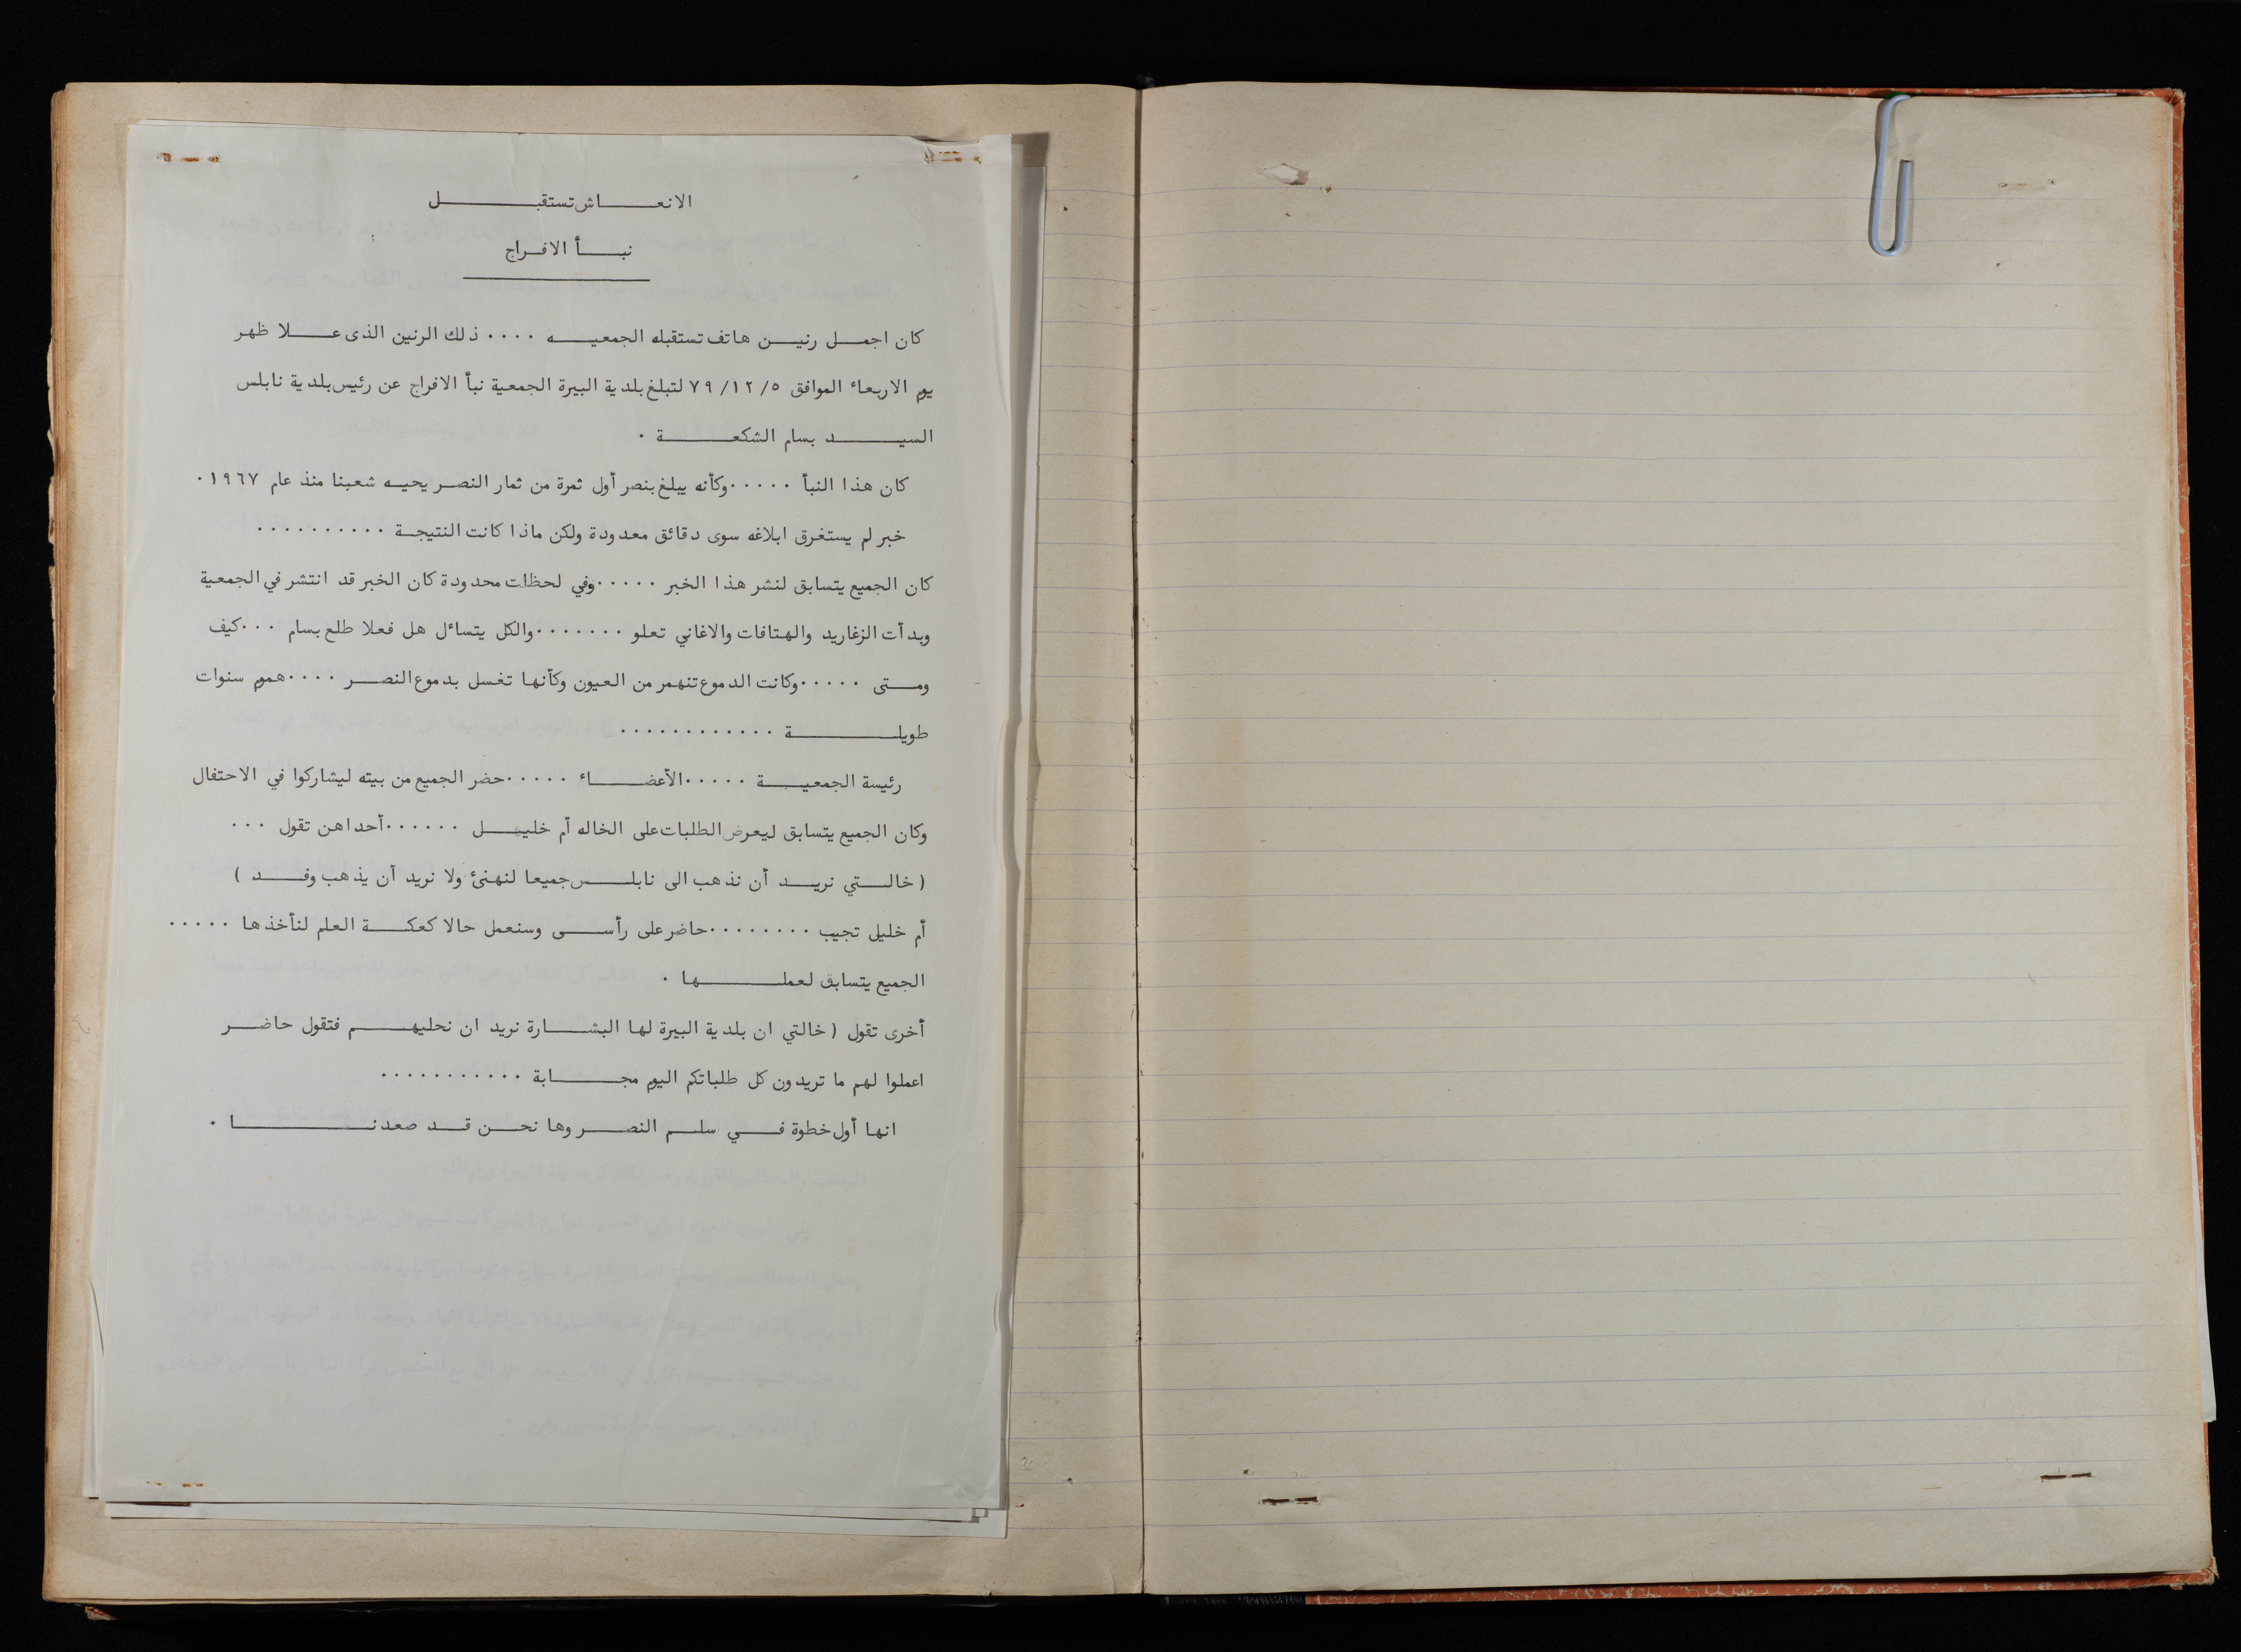 الانعاش تستقبل
نبأ الافراج
كان اجمل رنين هاتف تستقبله الجمعيه .... ذلك الرنين الذى علا ظهر
يوم الاربعاء الموافق ٥ /١٢ /٧٩ لتبلغ بلدية البيرة الجمعية نبأ الافراج عن رئيس بلدية نابلس
السيد بسام الشكعة .
كان هذا النبأ .....وكأنه يبلغ بنصر أول ثمرة من ثمار النصر يحيه شعبنا منذ عام ١٩٦٧.
خبر لم يستغرق ابلاغه سوى دقائق معدودة ولكن ماذا كانت النتيجة ..........
كان الجميع يتسابق لنشر هذا الخبر .....وفي لحظات محدودة كان الخبر قد انتشر في الجمعية
وبدأت الزغاريد والهتافات والاغاني تعلو .......والكل يتسائل هل فعلا طلع بسام ...كيف
ومتى .....وكانت الدموع تنهمر من العيون وكأنها تغسل بدموع النصر ....هموم سنوات
طويلة ............
رئيسة الجمعية .....الأعضاء .....حضر الجميع من بيته ليشاركوا في الاحتفال
وكان الجميع يتسابق ليعرض الطلبات على الخاله أم خليل ......أحداهن تقول ...
( خالتي نريد أن نذهب الى نابلس جميعا لنهنئ ولا نريد أن يذهب وفد )
أم خليل تجيب ........حاضر على رأسى وسنعمل حالا كعكة العلم لنأخذها .....
الجميع يتسابق لعملها .
أخرى تقول ( خالتي ان بلدية البيرة لها البشارة نريد ان نحليهم فتقول حاضر
اعملوا لهم ما تريدون كل طلباتكم اليوم مجابة ...........
انها أول خطوة في سلم النصر وها نحن قد صعدنا .